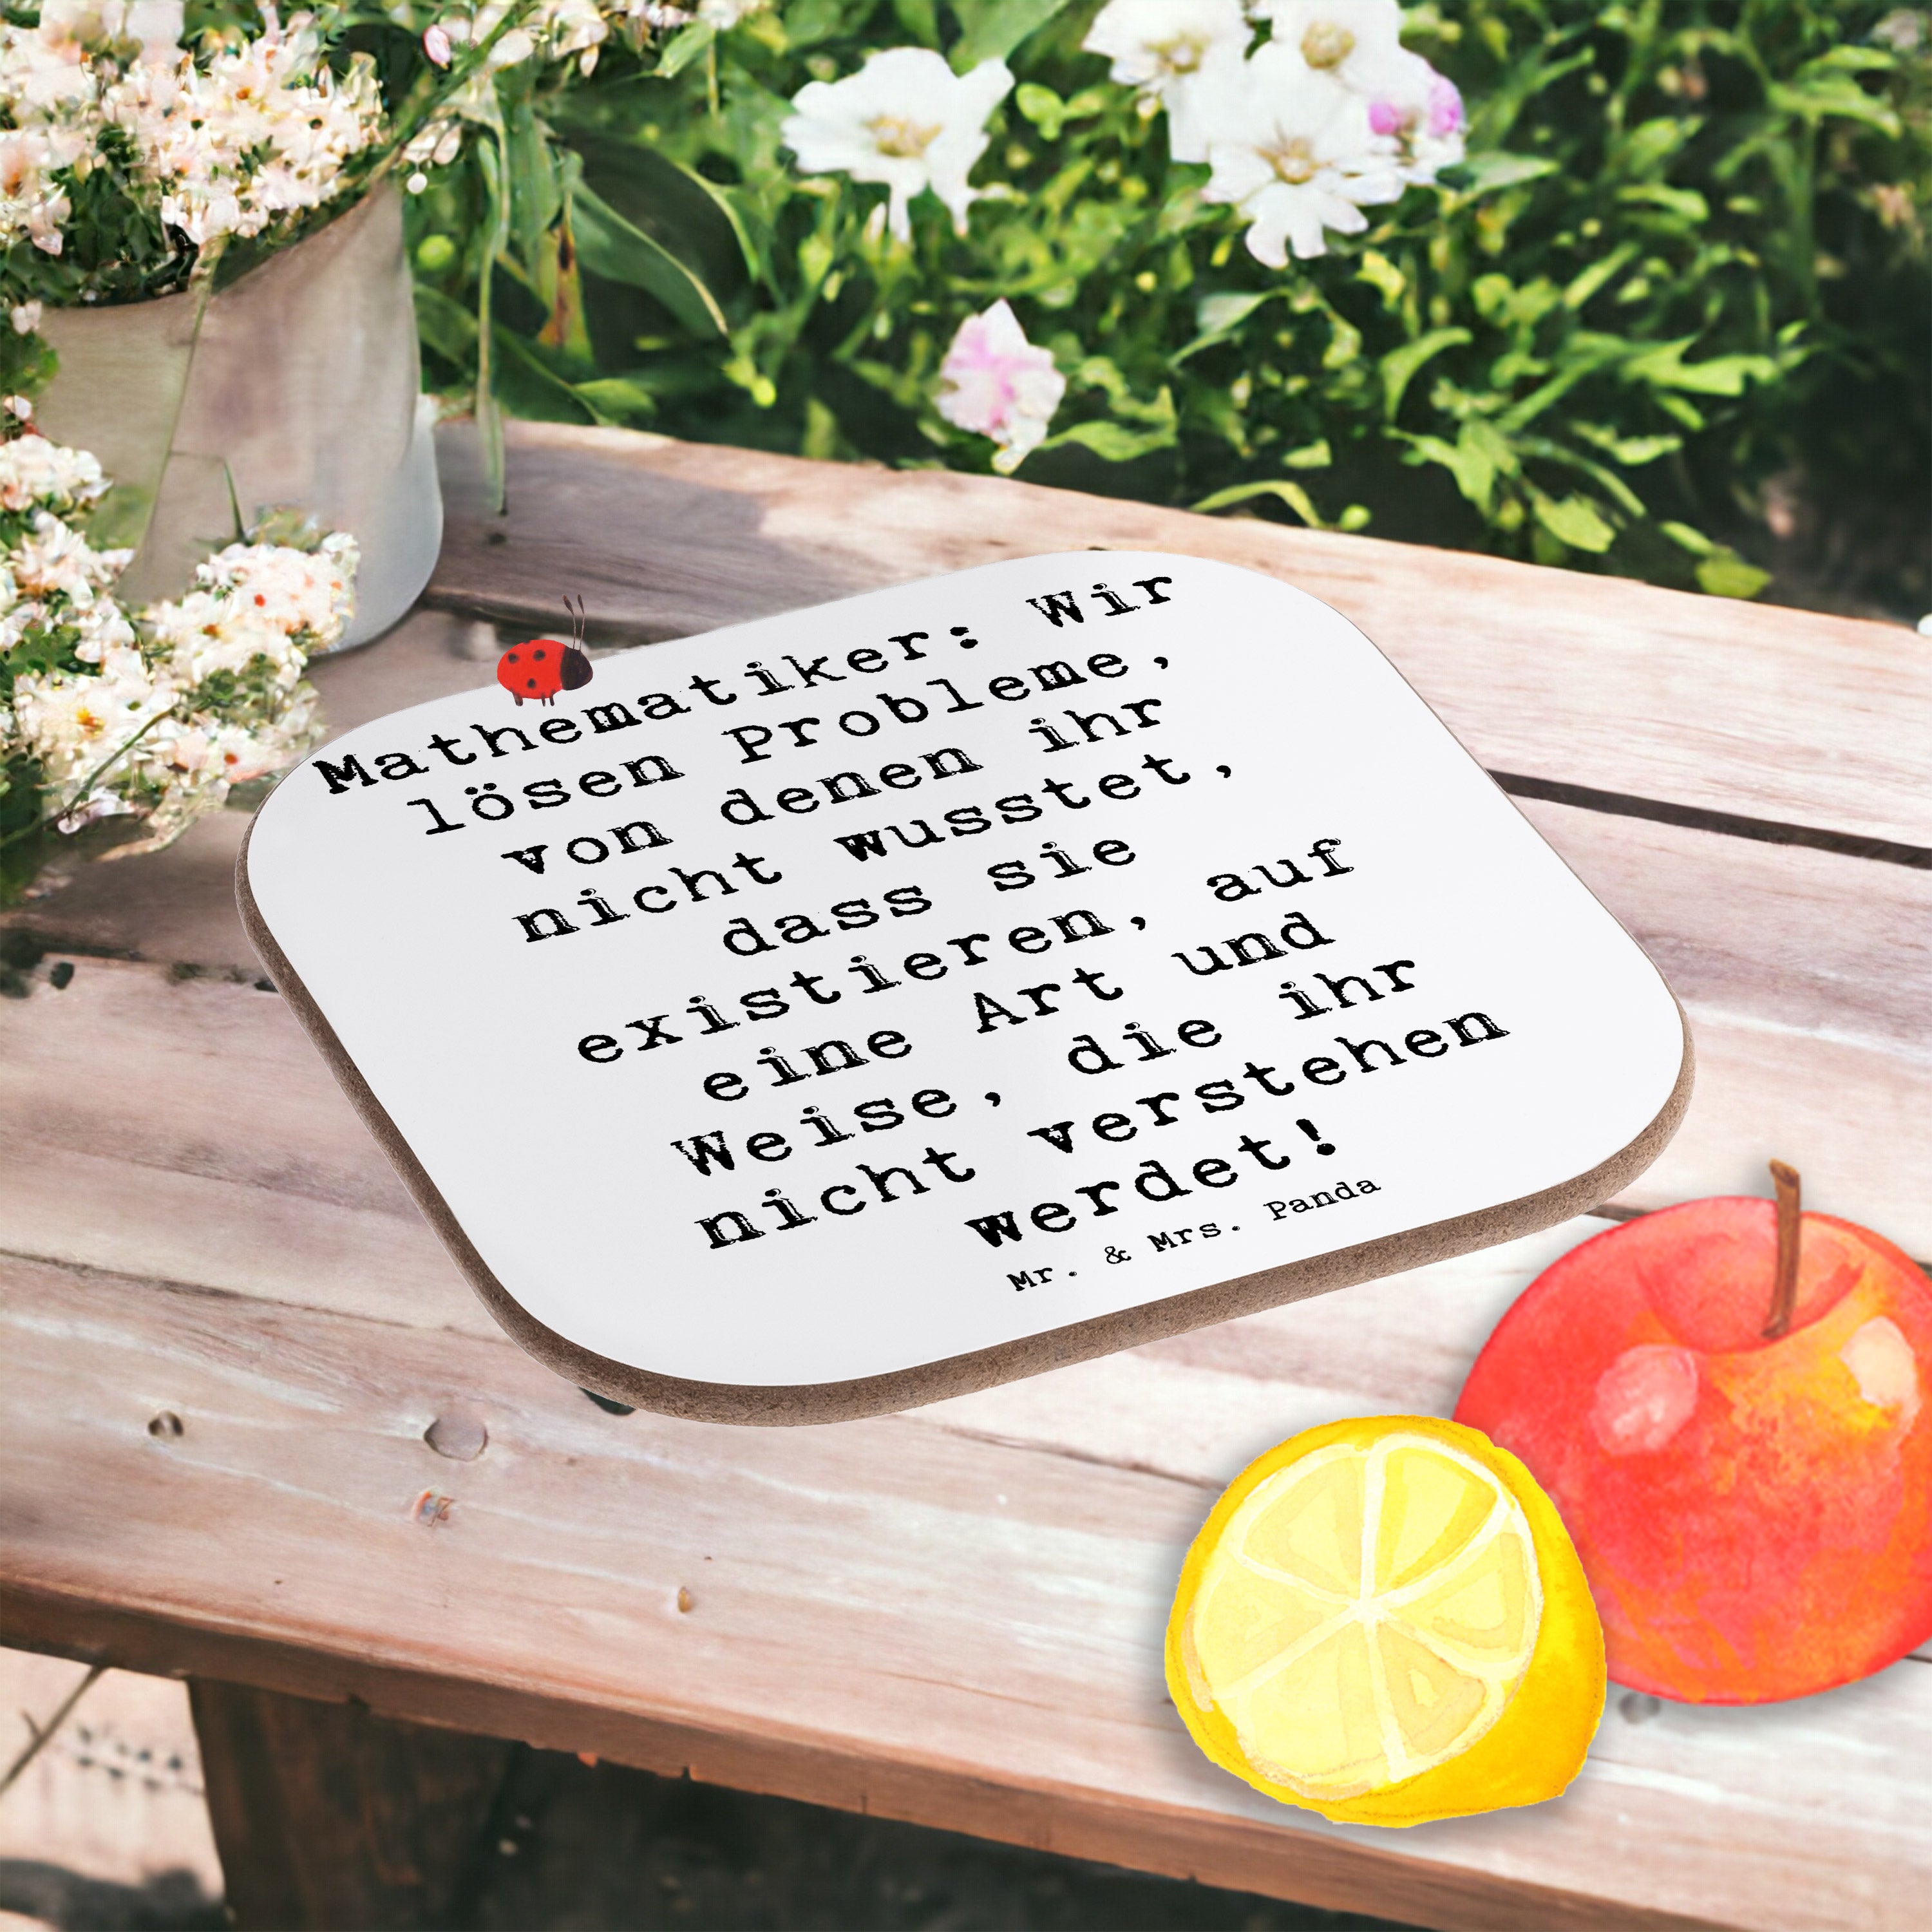 Mathematiker: Wir
lösen Probleme,
von denen ihr
nicht wusstet,
dass sie
existieren, auf
eine Art und
Weise, die ihr
nicht verstehen
werdet!
Mr. & Mrs. Panda